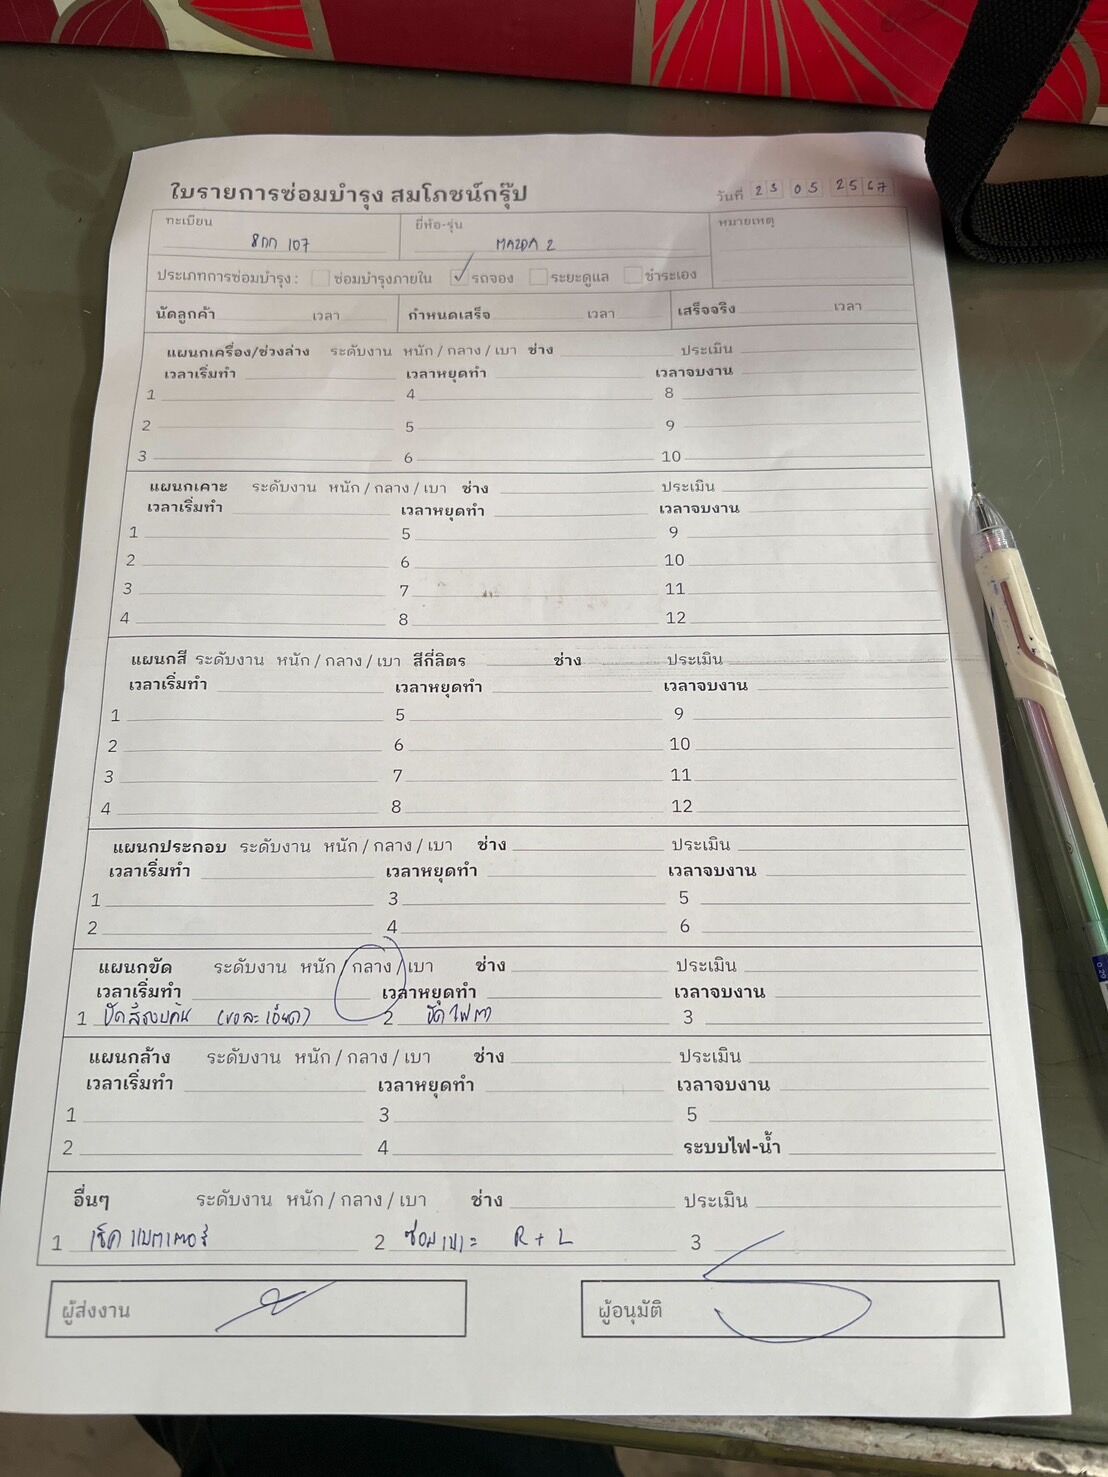 ใบรายการซ่อมบำรุง สมโภชน์กรุ๊ป วันที่ 23 05 2567
ทะเบียน ยี่ห้อ-รุ่น หมายเหตุ
8กก 107 MAZDA 2
ประเภทการซ่อมบำรุง : ซ่อมบำรุงภายใน ✓ รถจอง ระยะดูแล ชำระเอง
นัดลูกค้า เวลา กำหนดเสร็จ เวลา เสร็จจริง เวลา
แผนกเครื่อง/ช่วงล่าง ระดับงาน หนัก / กลาง / เบา ช่าง ประเมิน
เวลาเริ่มทำ เวลาหยุดทำ เวลาจบงาน
1 4 8
2 5 9
3 6 10
แผนกเคาะ ระดับงาน หนัก / กลาง / เบา ช่าง ประเมิน
เวลาเริ่มทำ เวลาหยุดทำ เวลาจบงาน
1 5 9
2 6 10
3 7 11
4 8 12
แผนกสี ระดับงาน หนัก / กลาง / เบา สีกี่ลิตร ช่าง ประเมิน
เวลาเริ่มทำ เวลาหยุดทำ เวลาจบงาน
1 5 9
2 6 10
3 7 11
4 8 12
แผนกประกอบ ระดับงาน หนัก / กลาง / เบา ช่าง ประเมิน
เวลาเริ่มทำ เวลาหยุดทำ เวลาจบงาน
1 3 5
2 4 6
แผนกขัด ระดับงาน หนัก / กลาง / เบา ช่าง ประเมิน
เวลาเริ่มทำ เวลาหยุดทำ เวลาจบงาน
1 ขัดสีรอบคัน (ขอละเอียด) 2 ขัดไฟตา 3
แผนกล้าง ระดับงาน หนัก / กลาง / เบา ช่าง ประเมิน
เวลาเริ่มทำ เวลาหยุดทำ เวลาจบงาน
1 3 5
2 4 ระบบไฟ-น้ำ
อื่นๆ ระดับงาน หนัก / กลาง / เบา ช่าง ประเมิน
1 เช็คแบตเตอรี่ 2 ซ่อมเบาะ R + L 3
ผู้ส่งงาน ผู้อนุมัติ